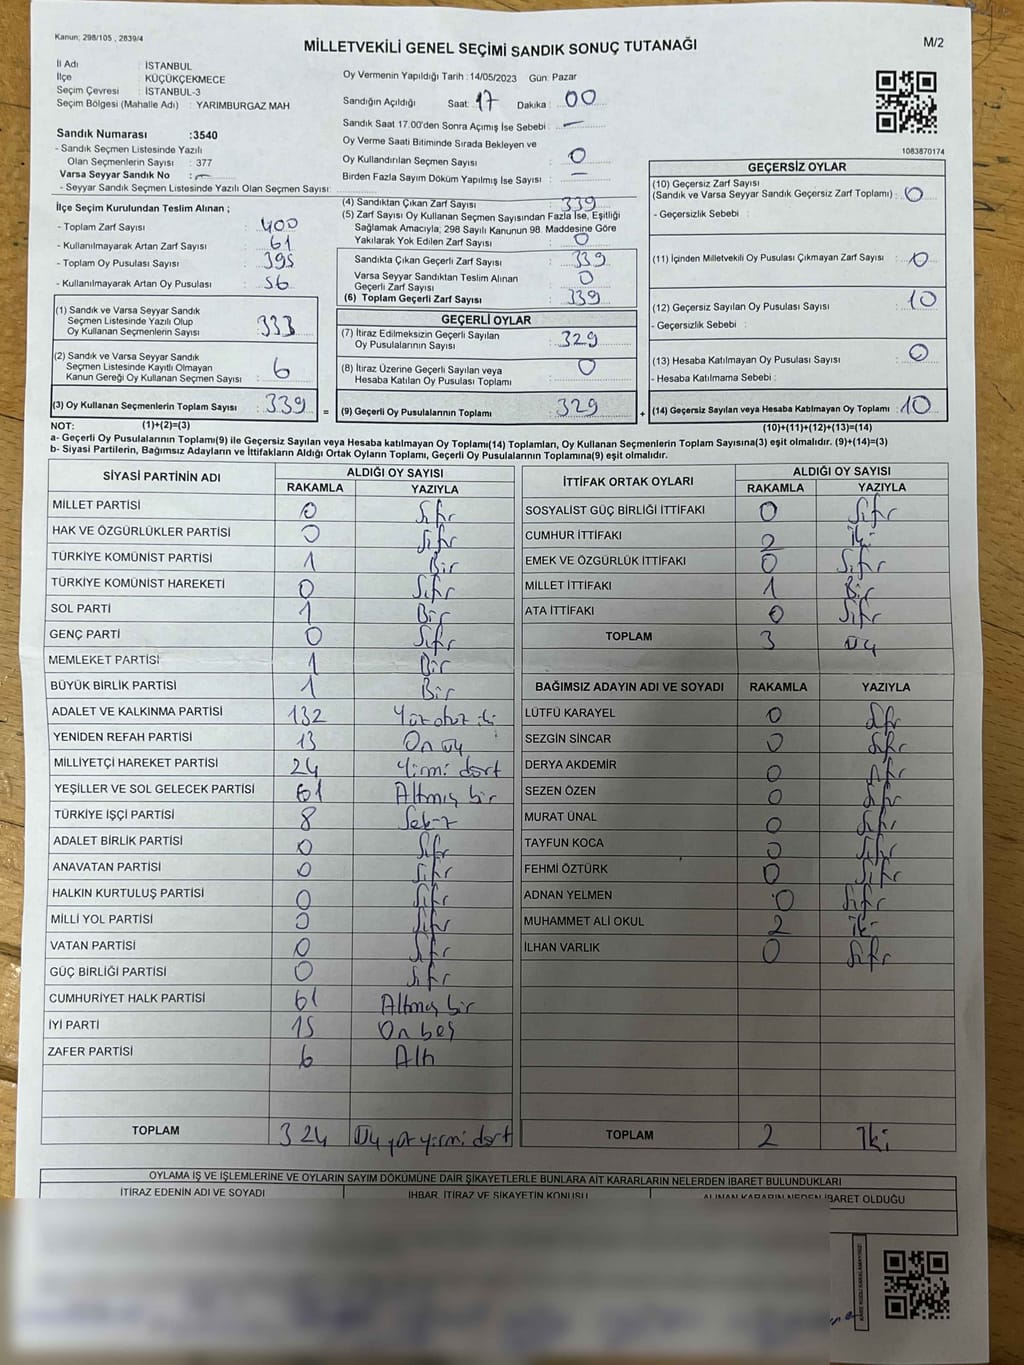 Kanun; 298/105 , 2839/4
MİLLETVEKİLİ GENEL SEÇİMİ SANDIK SONUÇ TUTANAĞI
M/2
İl Adı : İSTANBUL
İlçe : KÜÇÜKÇEKMECE
Seçim Çevresi : İSTANBUL-3
Seçim Bölgesi (Mahalle Adı) : YARIMBURGAZ MAH
Sandık Numarası :3540
- Sandık Seçmen Listesinde Yazılı
Olan Seçmenlerin Sayısı : 377
Varsa Seyyar Sandık No : -
- Seyyar Sandık Seçmen Listesinde Yazılı Olan Seçmen Sayısı:
Oy Vermenin Yapıldığı Tarih :14/05/2023 Gün: Pazar
Sandığın Açıldığı Saat: 17 Dakika : 00
Sandık Saat 17.00'den Sonra Açımış İse Sebebi : -
Oy Verme Saati Bitiminde Sırada Bekleyen ve
Oy Kullandırılan Seçmen Sayısı : 0
Birden Fazla Sayım Döküm Yapılmış İse Sayısı : -
1083870174
İlçe Seçim Kurulundan Teslim Alınan ;
- Toplam Zarf Sayısı : 400
- Kullanılmayarak Artan Zarf Sayısı : 61
- Toplam Oy Pusulası Sayısı : 395
- Kullanılmayarak Artan Oy Pusulası : 56
(1) Sandık ve Varsa Seyyar Sandık
Seçmen Listesinde Yazılı Olup
Oy Kullanan Seçmenlerin Sayısı : 333
(2) Sandık ve Varsa Seyyar Sandık
Seçmen Listesinde Kayıtlı Olmayan
Kanun Gereği Oy Kullanan Seçmen Sayısı : 6
(3) Oy Kullanan Seçmenlerin Toplam Sayısı : 339
(1)+(2)=(3)
(4) Sandıktan Çıkan Zarf Sayısı : 339
(5) Zarf Sayısı Oy Kullanan Seçmen Sayısından Fazla İse, Eşitliği
Sağlamak Amacıyla; 298 Sayılı Kanunun 98. Maddesine Göre
Yakılarak Yok Edilen Zarf Sayısı : 0
Sandıkta Çıkan Geçerli Zarf Sayısı : 339
Varsa Seyyar Sandıktan Teslim Alınan
Geçerli Zarf Sayısı : 0
(6) Toplam Geçerli Zarf Sayısı : 339
GEÇERLİ OYLAR
(7) İtiraz Edilmeksizin Geçerli Sayılan
Oy Pusulalarının Sayısı : 329
(8) İtiraz Üzerine Geçerli Sayılan veya
Hesaba Katılan Oy Pusulası Toplamı : 0
= (9) Geçerli Oy Pusulalarının Toplamı : 329
GEÇERSİZ OYLAR
(10) Geçersiz Zarf Sayısı
(Sandık ve Varsa Seyyar Sandık Geçersiz Zarf Toplamı) : 0
- Geçersizlik Sebebi :
(11) İçinden Milletvekili Oy Pusulası Çıkmayan Zarf Sayısı : 0
(12) Geçersiz Sayılan Oy Pusulası Sayısı : 10
- Geçersizlik Sebebi :
(13) Hesaba Katılmayan Oy Pusulası Sayısı : 0
- Hesaba Katılmama Sebebi :
+ (14) Geçersiz Sayılan veya Hesaba Katılmayan Oy Toplamı : 10
(10)+(11)+(12)+(13)=(14)
NOT:
a- Geçerli Oy Pusulalarının Toplamı(9) ile Geçersiz Sayılan veya Hesaba katılmayan Oy Toplamı(14) Toplamları, Oy Kullanan Seçmenlerin Toplam Sayısına(3) eşit olmalıdır. (9)+(14)=(3)
b- Siyasi Partilerin, Bağımsız Adayların ve İttifakların Aldığı Ortak Oyların Toplamı, Geçerli Oy Pusulalarının Toplamına(9) eşit olmalıdır.
SİYASİ PARTİNİN ADI ALDIĞI OY SAYISI
RAKAMLA YAZIYLA
MİLLET PARTİSİ 0 Sıfır
HAK VE ÖZGÜRLÜKLER PARTİSİ 0 Sıfır
TÜRKİYE KOMÜNİST PARTİSİ 1 Bir
TÜRKİYE KOMÜNİST HAREKETİ 0 Sıfır
SOL PARTİ 1 Bir
GENÇ PARTİ 0 Sıfır
MEMLEKET PARTİSİ 1 Bir
BÜYÜK BİRLİK PARTİSİ 1 Bir
ADALET VE KALKINMA PARTİSİ 132 Yüz otuz iki
YENİDEN REFAH PARTİSİ 13 On üç
MİLLİYETÇİ HAREKET PARTİSİ 24 Yirmi dört
YEŞİLLER VE SOL GELECEK PARTİSİ 61 Altmış bir
TÜRKİYE İŞÇİ PARTİSİ 8 Sekiz
ADALET BİRLİK PARTİSİ 0 Sıfır
ANAVATAN PARTİSİ 0 Sıfır
HALKIN KURTULUŞ PARTİSİ 0 Sıfır
MİLLİ YOL PARTİSİ 0 Sıfır
VATAN PARTİSİ 0 Sıfır
GÜÇ BİRLİĞİ PARTİSİ 0 Sıfır
CUMHURİYET HALK PARTİSİ 61 Altmış bir
İYİ PARTİ 15 On beş
ZAFER PARTİSİ 6 Altı
TOPLAM 324 Üç yüz yirmi dört
İTTİFAK ORTAK OYLARI ALDIĞI OY SAYISI
RAKAMLA YAZIYLA
SOSYALİST GÜÇ BİRLİĞİ İTTİFAKI 0 Sıfır
CUMHUR İTTİFAKI 2 İki
EMEK VE ÖZGÜRLÜK İTTİFAKI 0 Sıfır
MİLLET İTTİFAKI 1 Bir
ATA İTTİFAKI 0 Sıfır
TOPLAM 3 Üç
BAĞIMSIZ ADAYIN ADI VE SOYADI RAKAMLA YAZIYLA
LÜTFÜ KARAYEL 0 Sıfır
SEZGİN SİNCAR 0 Sıfır
DERYA AKDEMİR 0 Sıfır
SEZEN ÖZEN 0 Sıfır
MURAT ÜNAL 0 Sıfır
TAYFUN KOCA 0 Sıfır
FEHMİ ÖZTÜRK 0 Sıfır
ADNAN YELMEN 0 Sıfır
MUHAMMET ALİ OKUL 2 İki
İLHAN VARLIK 0 Sıfır
TOPLAM 2 İki
OYLAMA İŞ VE İŞLEMLERİNE VE OYLARIN SAYIM DÖKÜMÜNE DAİR ŞİKAYETLERLE BUNLARA AİT KARARLARIN NELERDEN İBARET BULUNDUKLARI
İTİRAZ EDENİN ADI VE SOYADI İHBAR, İTİRAZ VE ŞİKAYETİN KONUSU ALINAN KARARIN NEDEN İBARET OLDUĞU